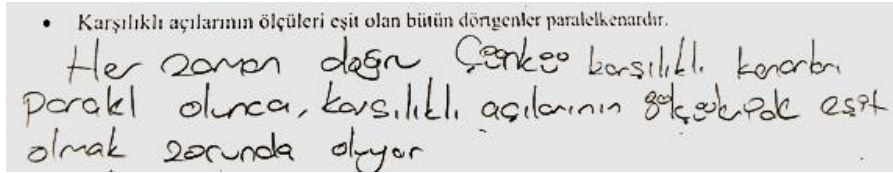 • Karşılıklı açılarının ölçüleri eşit olan bütün dörtgenler paralelkenardır.
Her zaman doğru Çünkü karşılıklı kenarları
paralel olunca, karşılıklı açılarının eşit
olmak zorunda oluyor